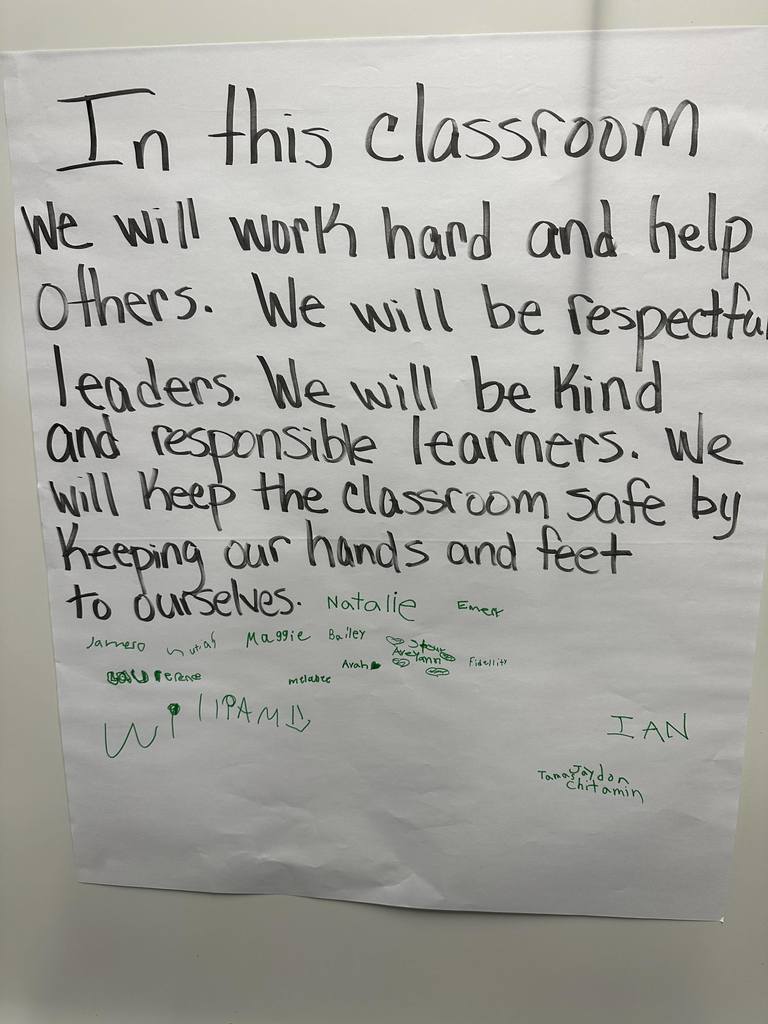 In this classroom
We will work hard and help
others. We will be respectful
leaders. We will be kind
and responsible learners. We
will keep the classroom safe by
keeping our hands and feet
to ourselves. Natalie
Maggie Bailey
Arah Fidellity
IAN
Jaydon
Chitamin